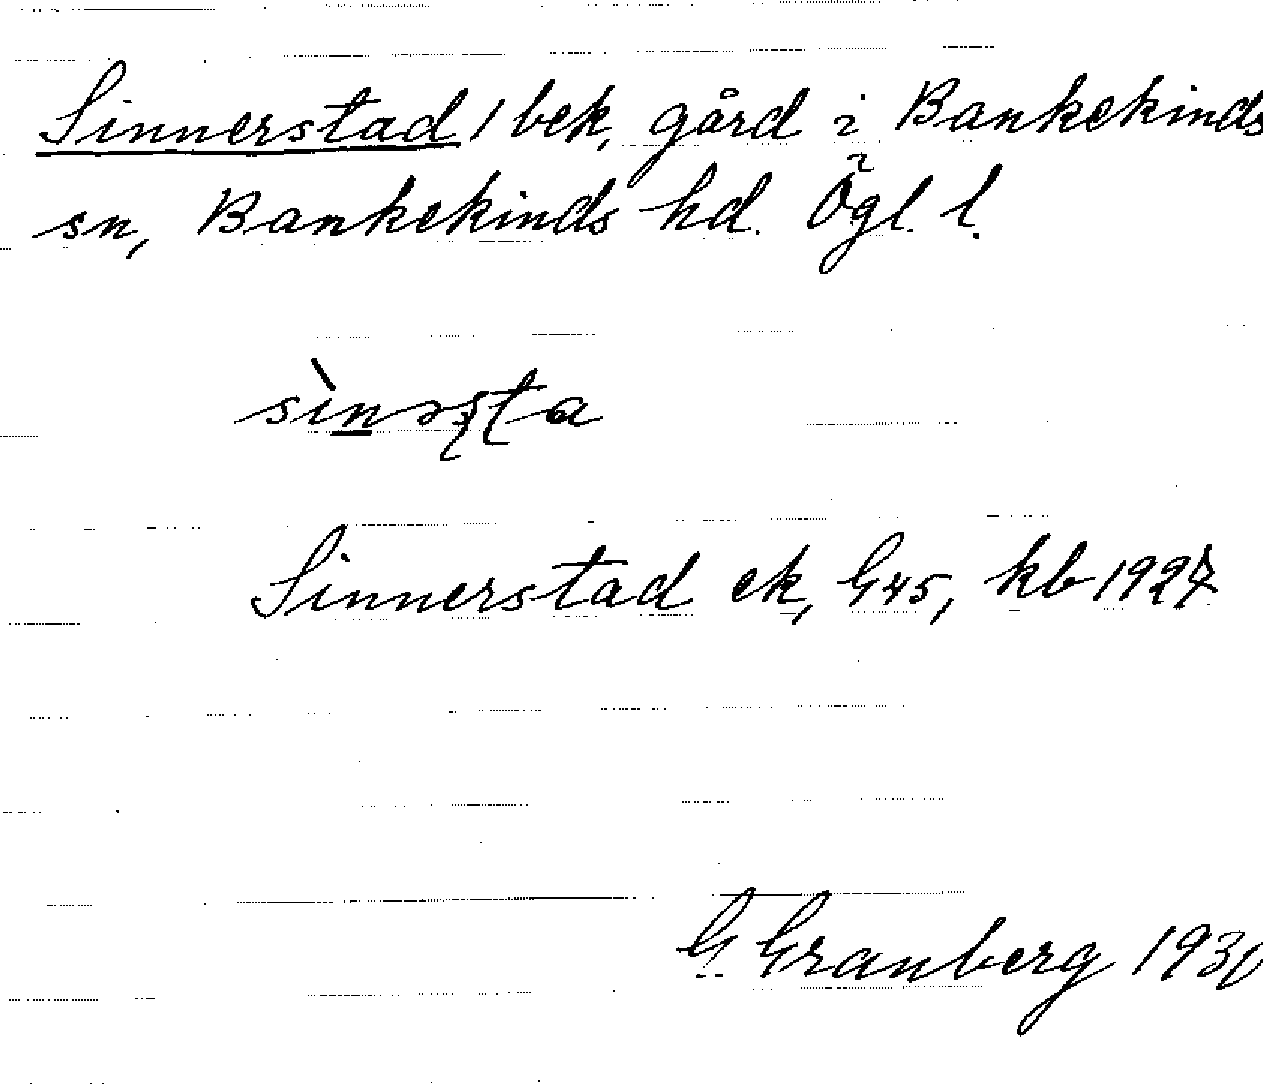 Sinnerstad / bek, gård i Bankekinds
sn, Bankekinds hd. Ögl. l.
Sinnerstad ek, G45, kb 1927
G Granberg 1930